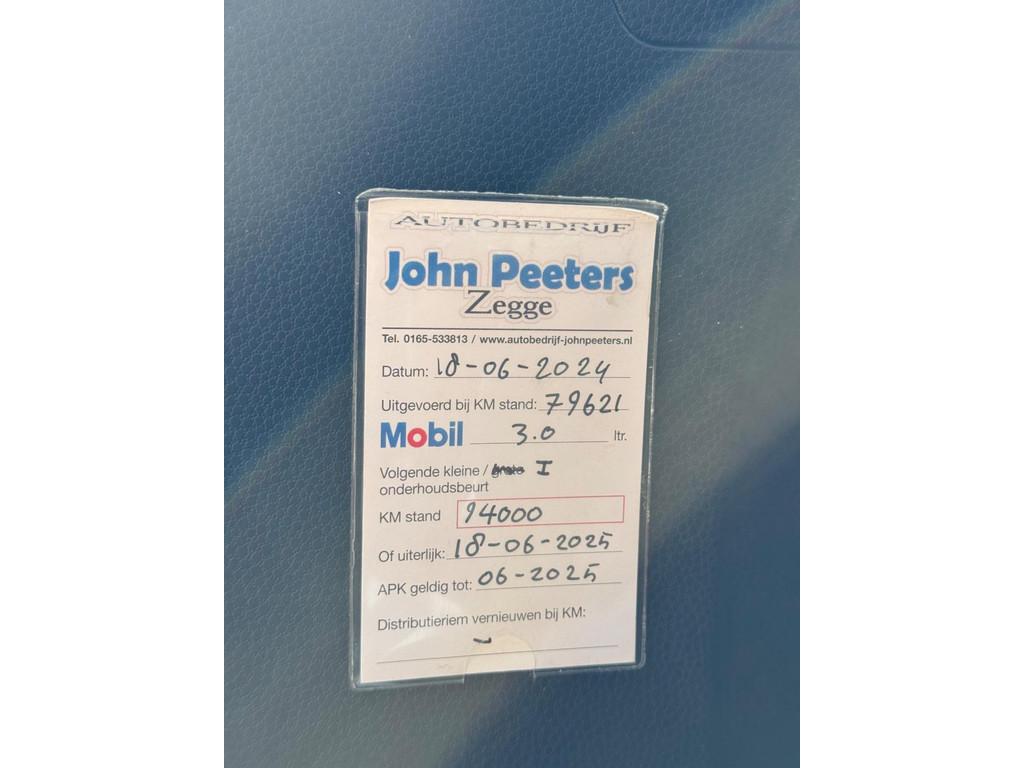 AUTOBEDRIJF
John Peeters
Zegge
Tel. 0165-533813 / www.autobedrijf-johnpeeters.nl
Datum: 18-06-2024
Uitgevoerd bij KM stand: 79621
Mobil 3.0 ltr.
Volgende kleine / grote I
onderhoudsbeurt
KM stand 94000
Of uiterlijk: 18-06-2025
APK geldig tot: 06-2025
Distributieriem vernieuwen bij KM:
-